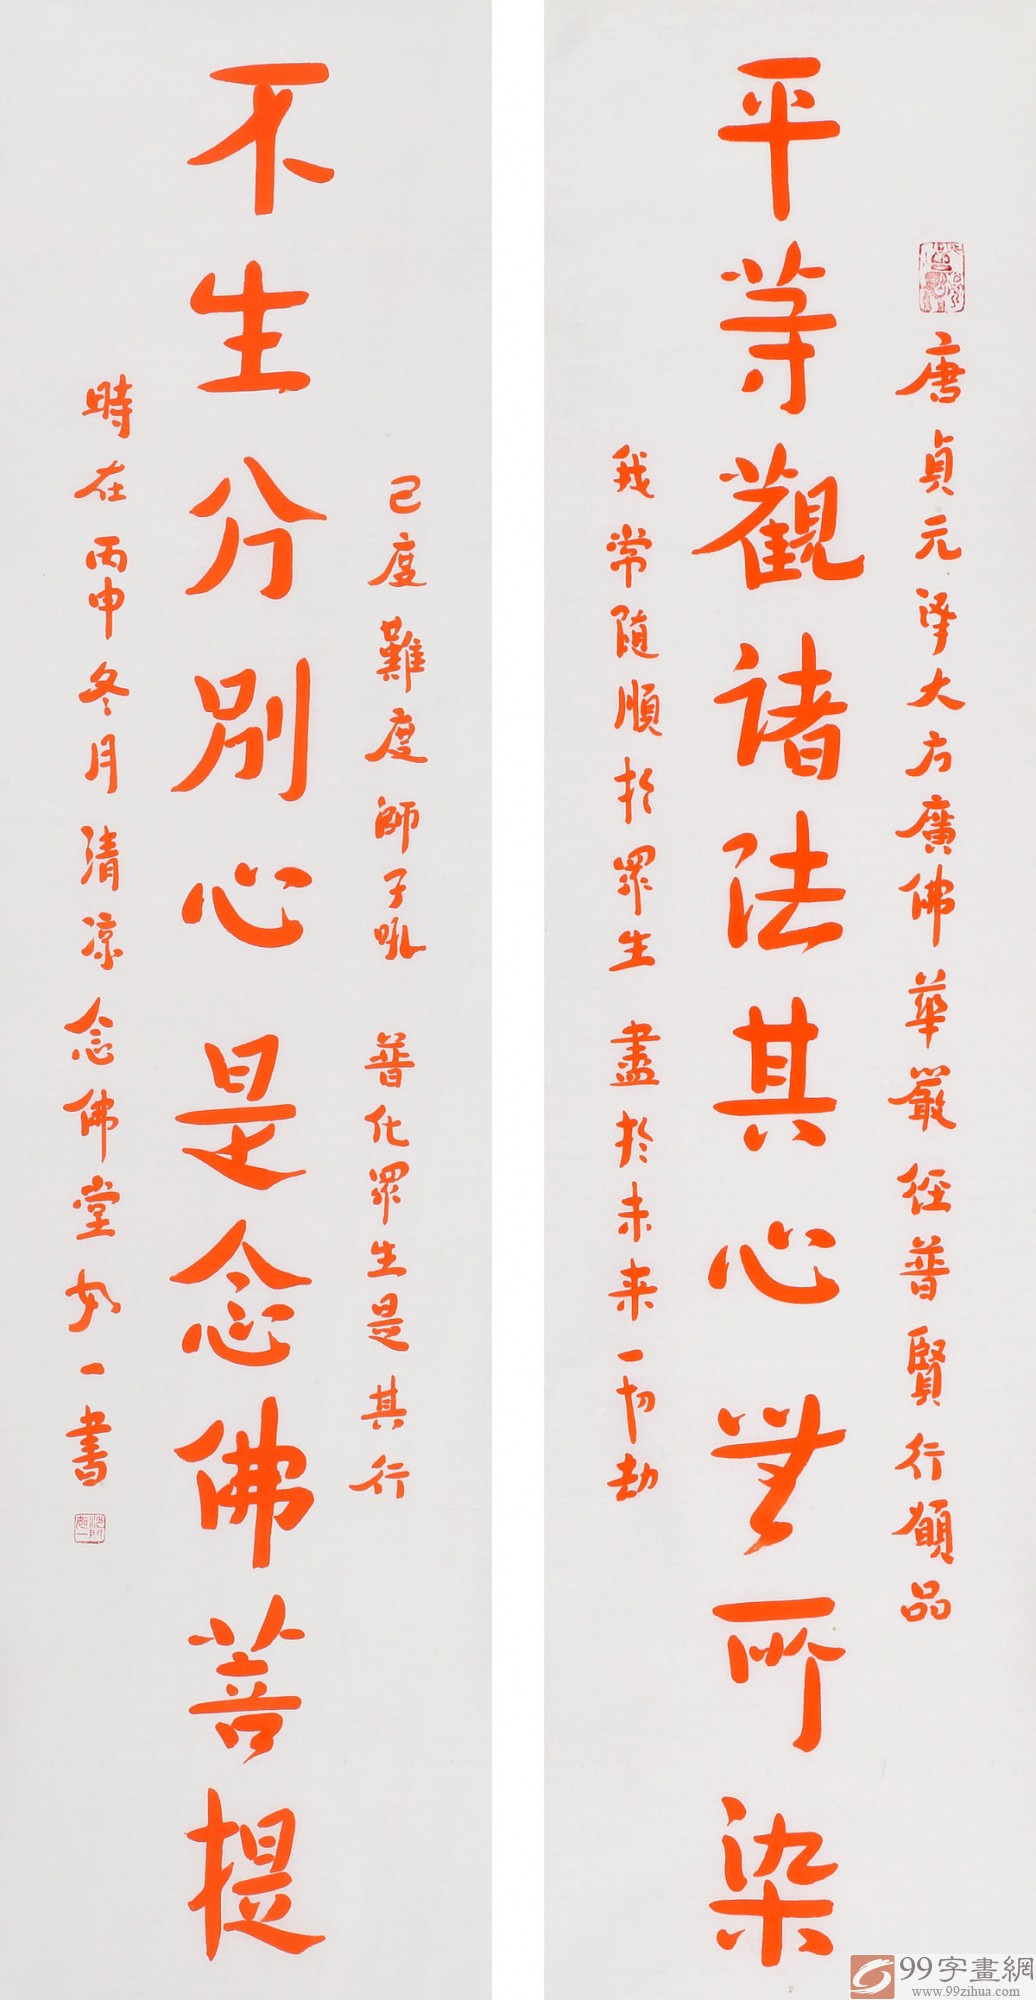 唐貞元譯大方廣佛華嚴經普賢行願品
平等觀諸法其心無所染
我常隨順於眾生 盡於未來一切劫
已度難度師子吼 普化眾生是其行
不生分別心是念佛菩提
時在丙申冬月清涼念佛堂如一書
沙門
如一
99字畫網
www.99zihua.com